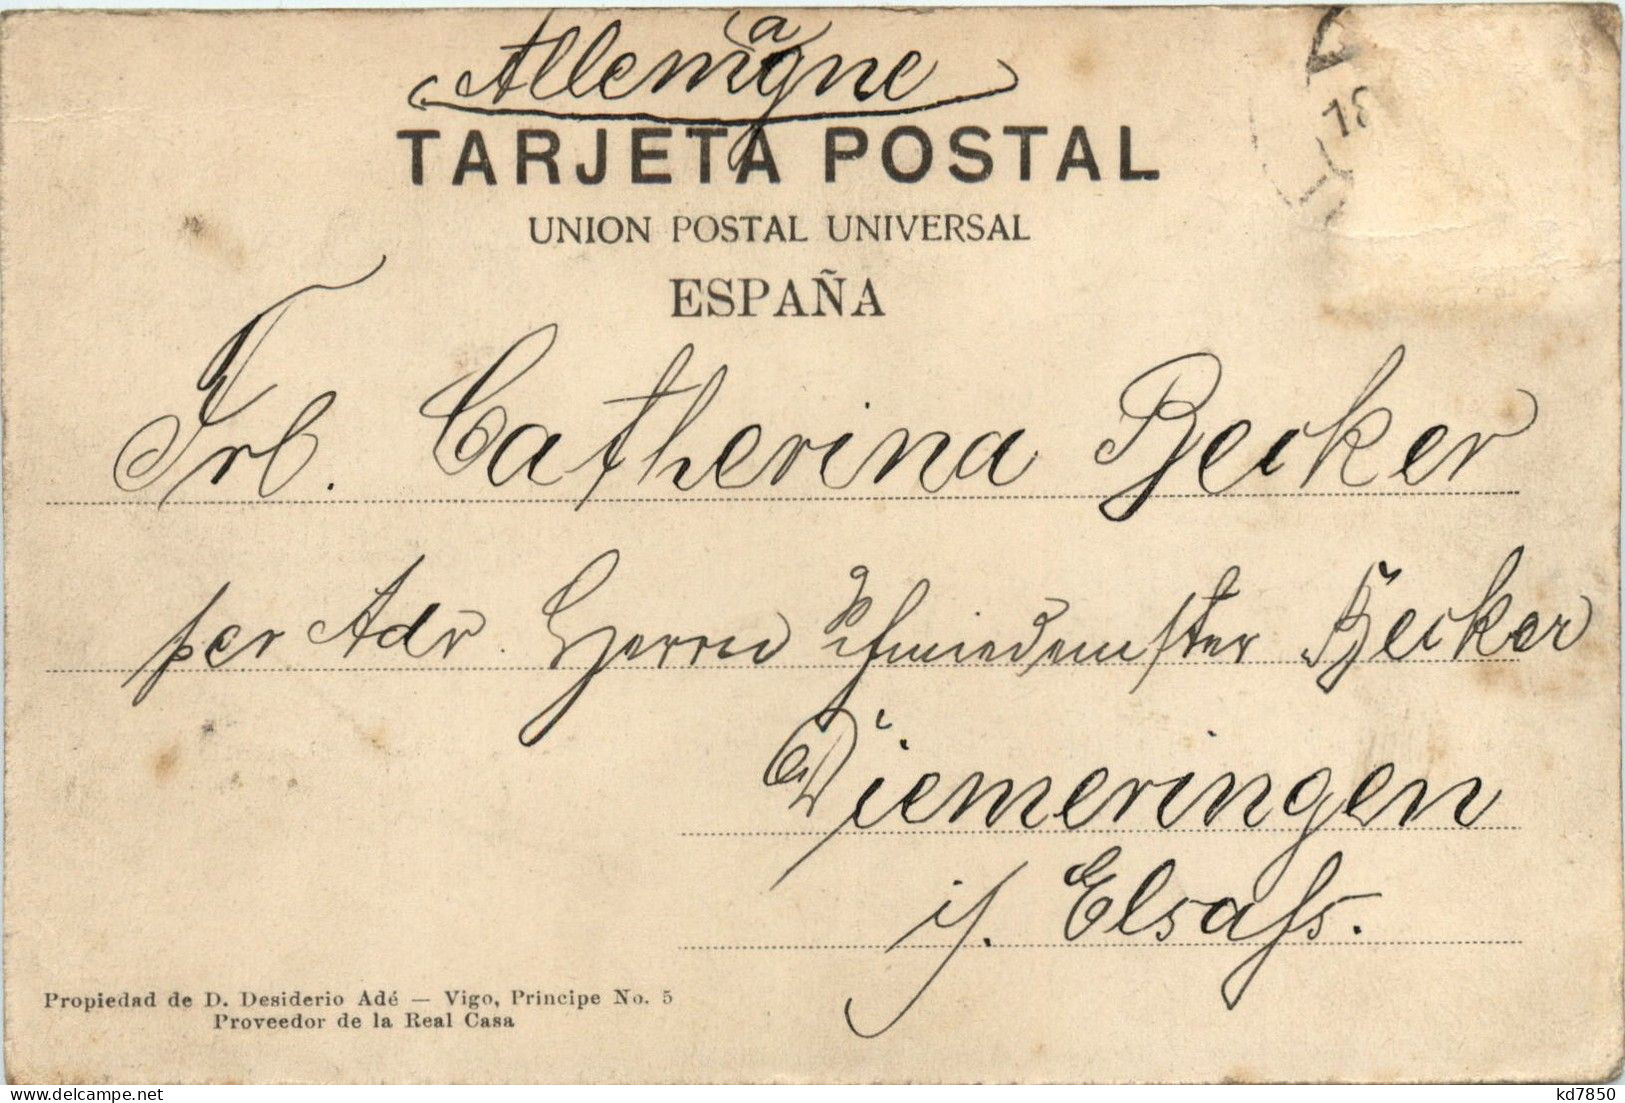 Allemagne
TARJETA POSTAL
UNION POSTAL UNIVERSAL
ESPAÑA
18
Frl. Catherina Becker
per Adr. Herrn Schmiedemster Becker
Diemeringen
i/. Elsaß.
Propiedad de D. Desiderio Adé — Vigo, Principe No. 5
Proveedor de la Real Casa
delcampe.net
kd7850